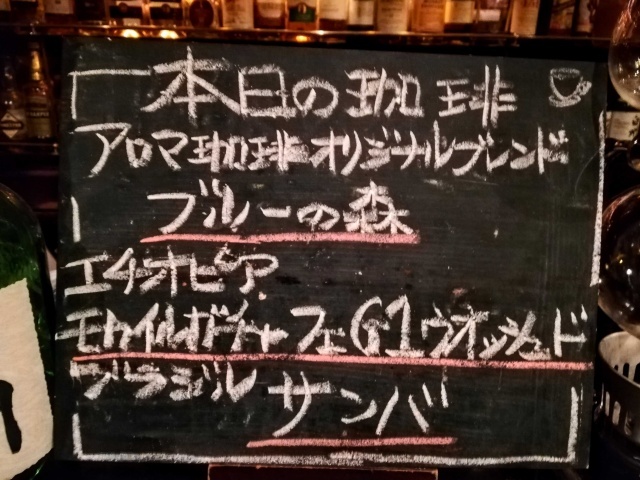 本日の珈琲
アロマ珈琲オリジナルブレンド
ブルーの森
エチオピア
モカイルガチャフェG1ウオッシュド
ブラジル サンバ